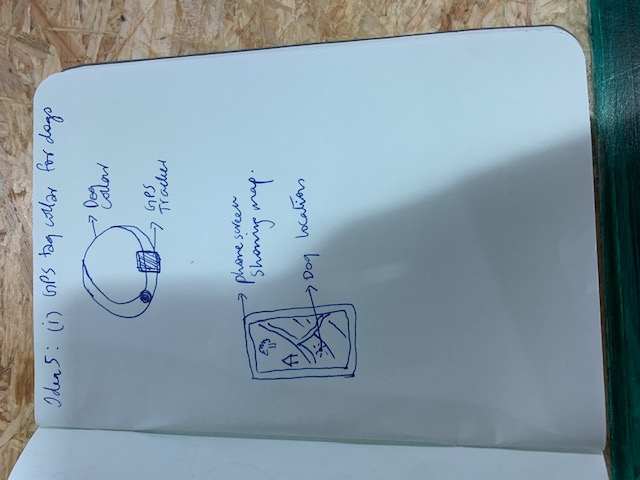 Idea 5: (i) GPS tag collar for dogs
Dog
Collar
GPS
Tracker
phone screen
showing map.
Dog location